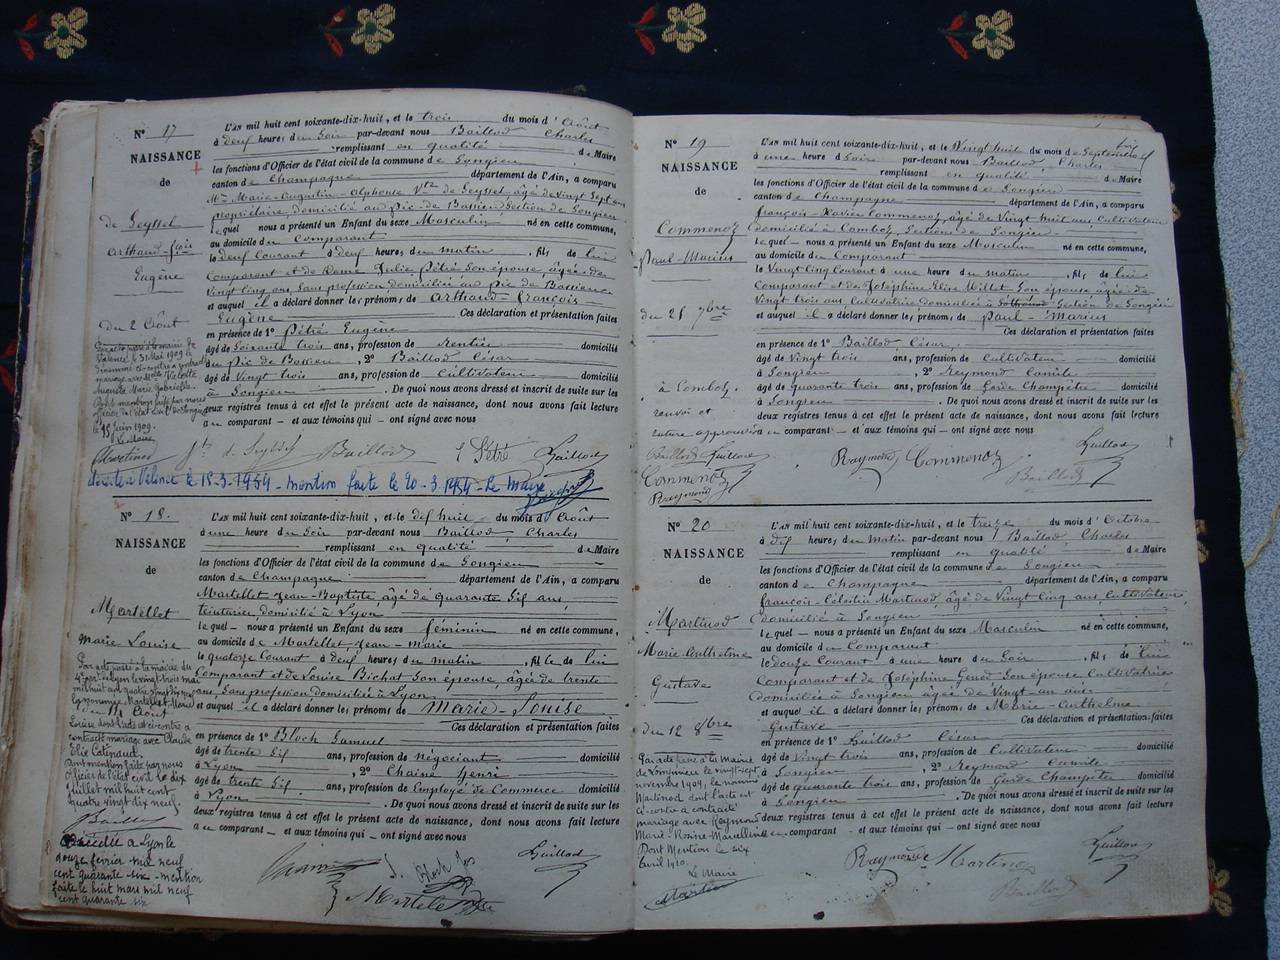 N° 17
NAISSANCE
de
de Seyssel
Arthaud-frois
Eugène
Du 2 Août
L'AN mil huit cent soixante-dix-huit, et le trois du mois d'Août
à deux heures du Soir par-devant nous Baillod Charles
remplissant en qualité de Maire
les fonctions d'Officier de l'état civil de la commune de Songieu
canton de Champagne département de l'Ain, a comparu
Mr Marie-Augustin-Alphonse Vte de Seyssel âgé de Vingt Sept ans
propriétaire, domicilié au Pic de Bassieu Section de Songieu
lequel nous a présenté un Enfant du sexe Masculin né en cette commune,
au domicile du Comparant
le deux Courant à deux heures du matin, fils de lui
Comparant et de Dame Julie Pétré Son épouse, âgée de
Vingt cinq ans, Sans profession domiciliée au Pic de Bassieu
et auquel il a déclaré donner les prénoms de Arthaud-françois
Eugène Ces déclaration et présentation faites
en présence de 1° Pétré Eugène
âgé de Soixante trois ans, profession de Rentier domicilié
au Pic de Bassieu, 2° Baillod César
âgé de Vingt trois ans, profession de Cultivateur domicilié
à Songieu. De quoi nous avons dressé et inscrit de suite sur les
deux registres tenus à cet effet le présent acte de naissance, dont nous avons fait lecture
au comparant et aux témoins qui ont signé avec nous
le 15 Juin 1909.
Le Maire
Baillod
Pétré
Baillod
décédé à Valence le 15-3-1954 - mention faite le 20-3-1954 - Le Maire
N° 18.
NAISSANCE
de
Martellet
Marie Louise
du 14 Août
L'AN mil huit cent soixante-dix-huit, et le dix huit du mois d'Août
à une heure du Soir par-devant nous Baillod Charles
remplissant en qualité de Maire
les fonctions d'Officier de l'état civil de la commune de Songieu
canton de Champagne département de l'Ain, a comparu
Martellet Jean-Baptiste âgé de quarante Six ans,
teinturier domicilié à Lyon
lequel nous a présenté un Enfant du sexe féminin né en cette commune,
au domicile de Martellet Jean-Marie
le quatorze Courant à deux heures du matin, fille de lui
Comparant et de Louise Bichat Son épouse, âgée de trente
ans, Sans profession domiciliée à Lyon
et auquel il a déclaré donner les prénoms de Marie-Louise
Ces déclaration et présentation faites
en présence de 1° Bloch Samuel
âgé de trente Six ans, profession de négociant domicilié
à Lyon, 2° Chaine Henri
âgé de trente Six ans, profession de Employé de Commerce domicilié
à Lyon. De quoi nous avons dressé et inscrit de suite sur les
deux registres tenus à cet effet le présent acte de naissance, dont nous avons fait lecture
au comparant et aux témoins qui ont signé avec nous
Louise dont l'acte est ci-contre a
contracté mariage avec Claude
Dont mention faite par nous
Officier de l'état civil le dix
Juillet mil huit cent
quatre vingt dix neuf.
Baillod
Décédée à Lyon le
douze février mil neuf
cent quarante six - mention
faite le huit mars mil neuf
cent quarante six
Baillod
N° 19
NAISSANCE
de
Commenoz
Paul-Marius
du 25 7bre
à Comboz,
renvoi et
rature approuvés
L'AN mil huit cent soixante-dix-huit, et le Vingt huit du mois de Septembre
à une heure du Soir par-devant nous Baillod Charles
remplissant en qualité de Maire
les fonctions d'Officier de l'état civil de la commune de Songieu
canton de Champagne département de l'Ain, a comparu
françois-Xavier Commenoz, âgé de Vingt huit ans Cultivateur
domicilié à Comboz Section de Songieu
lequel nous a présenté un Enfant du sexe Masculin né en cette commune,
au domicile du Comparant
le Vingt cinq Courant à une heure du matin, fils de lui
Comparant et de Joséphine-Elise Millet Son épouse âgée de
Vingt trois ans Cultivatrice domiciliée à Section de Songieu
et auquel il a déclaré donner les prénoms de Paul-Marius
Ces déclaration et présentation faites
en présence de 1° Baillod César
âgé de Vingt trois ans, profession de Cultivateur domicilié
à Songieu, 2° Reymond Camille
âgé de quarante trois ans, profession de Garde Champêtre domicilié
à Songieu. De quoi nous avons dressé et inscrit de suite sur les
deux registres tenus à cet effet le présent acte de naissance, dont nous avons fait lecture
au comparant et aux témoins qui ont signé avec nous
Baillod
Commenoz
Raymond
Raymond Commenoz Baillod
N° 20
NAISSANCE
de
Martinod
Marie-Anthelme
Gustave
du 12 8bre
L'AN mil huit cent soixante-dix-huit, et le treize du mois d'Octobre
à dix heures du Matin par-devant nous Baillod Charles
remplissant en qualité de Maire
les fonctions d'Officier de l'état civil de la commune de Songieu
canton de Champagne département de l'Ain, a comparu
françois-Célestin Martinod, âgé de Vingt cinq ans, Cultivateur
domicilié à Songieu
lequel nous a présenté un Enfant du sexe Masculin né en cette commune,
au domicile du Comparant
le douze Courant à une heure du Soir, fils de lui
Comparant et de Joséphine Son épouse Cultivatrice
domiciliée à Songieu âgée de Vingt un ans
et auquel il a déclaré donner les prénoms de Marie-Anthelme
Gustave Ces déclaration et présentation faites
en présence de 1° Baillod César
âgé de Vingt trois ans, profession de Cultivateur domicilié
à Songieu, 2° Reymond Camille
âgé de quarante trois ans, profession de Garde Champêtre domicilié
à Songieu. De quoi nous avons dressé et inscrit de suite sur les
deux registres tenus à cet effet le présent acte de naissance, dont nous avons fait lecture
au comparant et aux témoins qui ont signé avec nous
Par acte passé à la Mairie
de le vingt-sept
novembre 1909, le nommé
Martinod dont l'acte est
ci-contre a contracté
mariage avec Raymond
Marie-Rosine-Marcelline
Dont Mention le six
avril 1910.
Le Maire
Raymond Martinod
Baillod